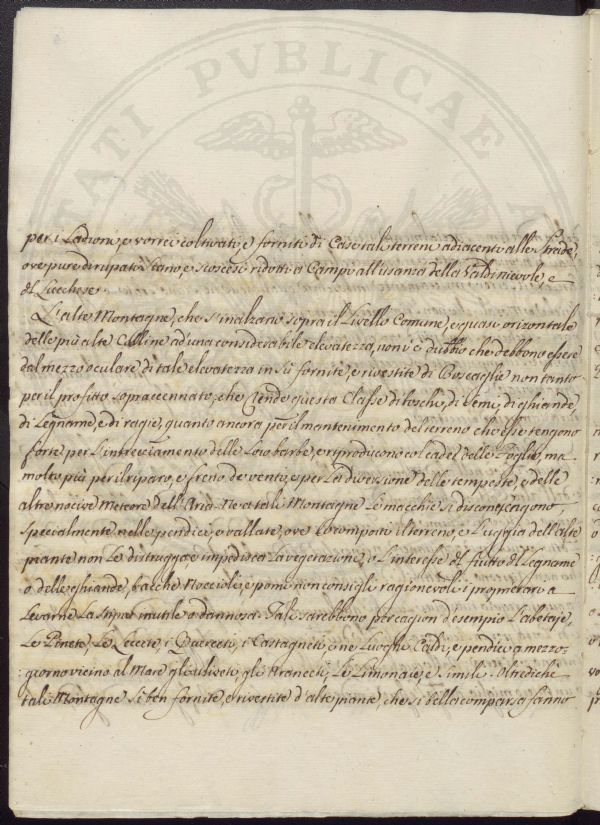 TATI PVBLICAE
per i Ladroni, e vorrei coltivati, e forniti di Case tali terreni adiacenti alle strade,
ove pure dirupati siano, e scoscesi ridotti a Campi all'usanza della Valdinievole, e
del Lucchese.
L'alte Montagne, che s'inalzano sopra il Livello Comune, e quasi orizontale
delle più alte Colline ad una considerabile elevatezza, non v'è dubbio che debbono essere
dal mezzo oculare di tale elevatezza in sù fornite, e rivestite di Boscaglie non tanto
per il profitto sopraccennato, che rende questa Classe di boschi, di semi, di ghiande,
di Legname, e di ragie, quanto ancora per il mantenimento del terreno che esse tengono
forte per l'intrecciamento delle Loro barbe, e riproducono col cader delle foglie, ma
molto più per il riparo, e freno de venti, e per la diversione delle tempeste, e delle
altre nocive Meteore dell'Aria. Ne a tali Montagne le macchie si disconvengono,
specialmente nelle pendici, e vallate, ove lo comporti il terreno, e l'uggia dell'alte
piante non le distrugga, e impedisca la vegetazione, o l'interesse del frutto del Legname
o delle ghiande, bacche Nocciole, e pome non consigli ragionevoli i proprietari a
Levarne la stipa inutile o dannosa. Tali sarebbono per cagion d'esempio l'abetaje,
Le Pinete, Le Leccete, i Querceti, i Castagneti, e ne Luoghi Caldi, e pendici a mezzo-
:giorno vicino al Mare gli uliveti, gli Aranceti, Le Limonaie, e simili. Oltrediche
tali Montagne si ben fornite, e rivestite d'alte piante, che sì bella comparsa fanno